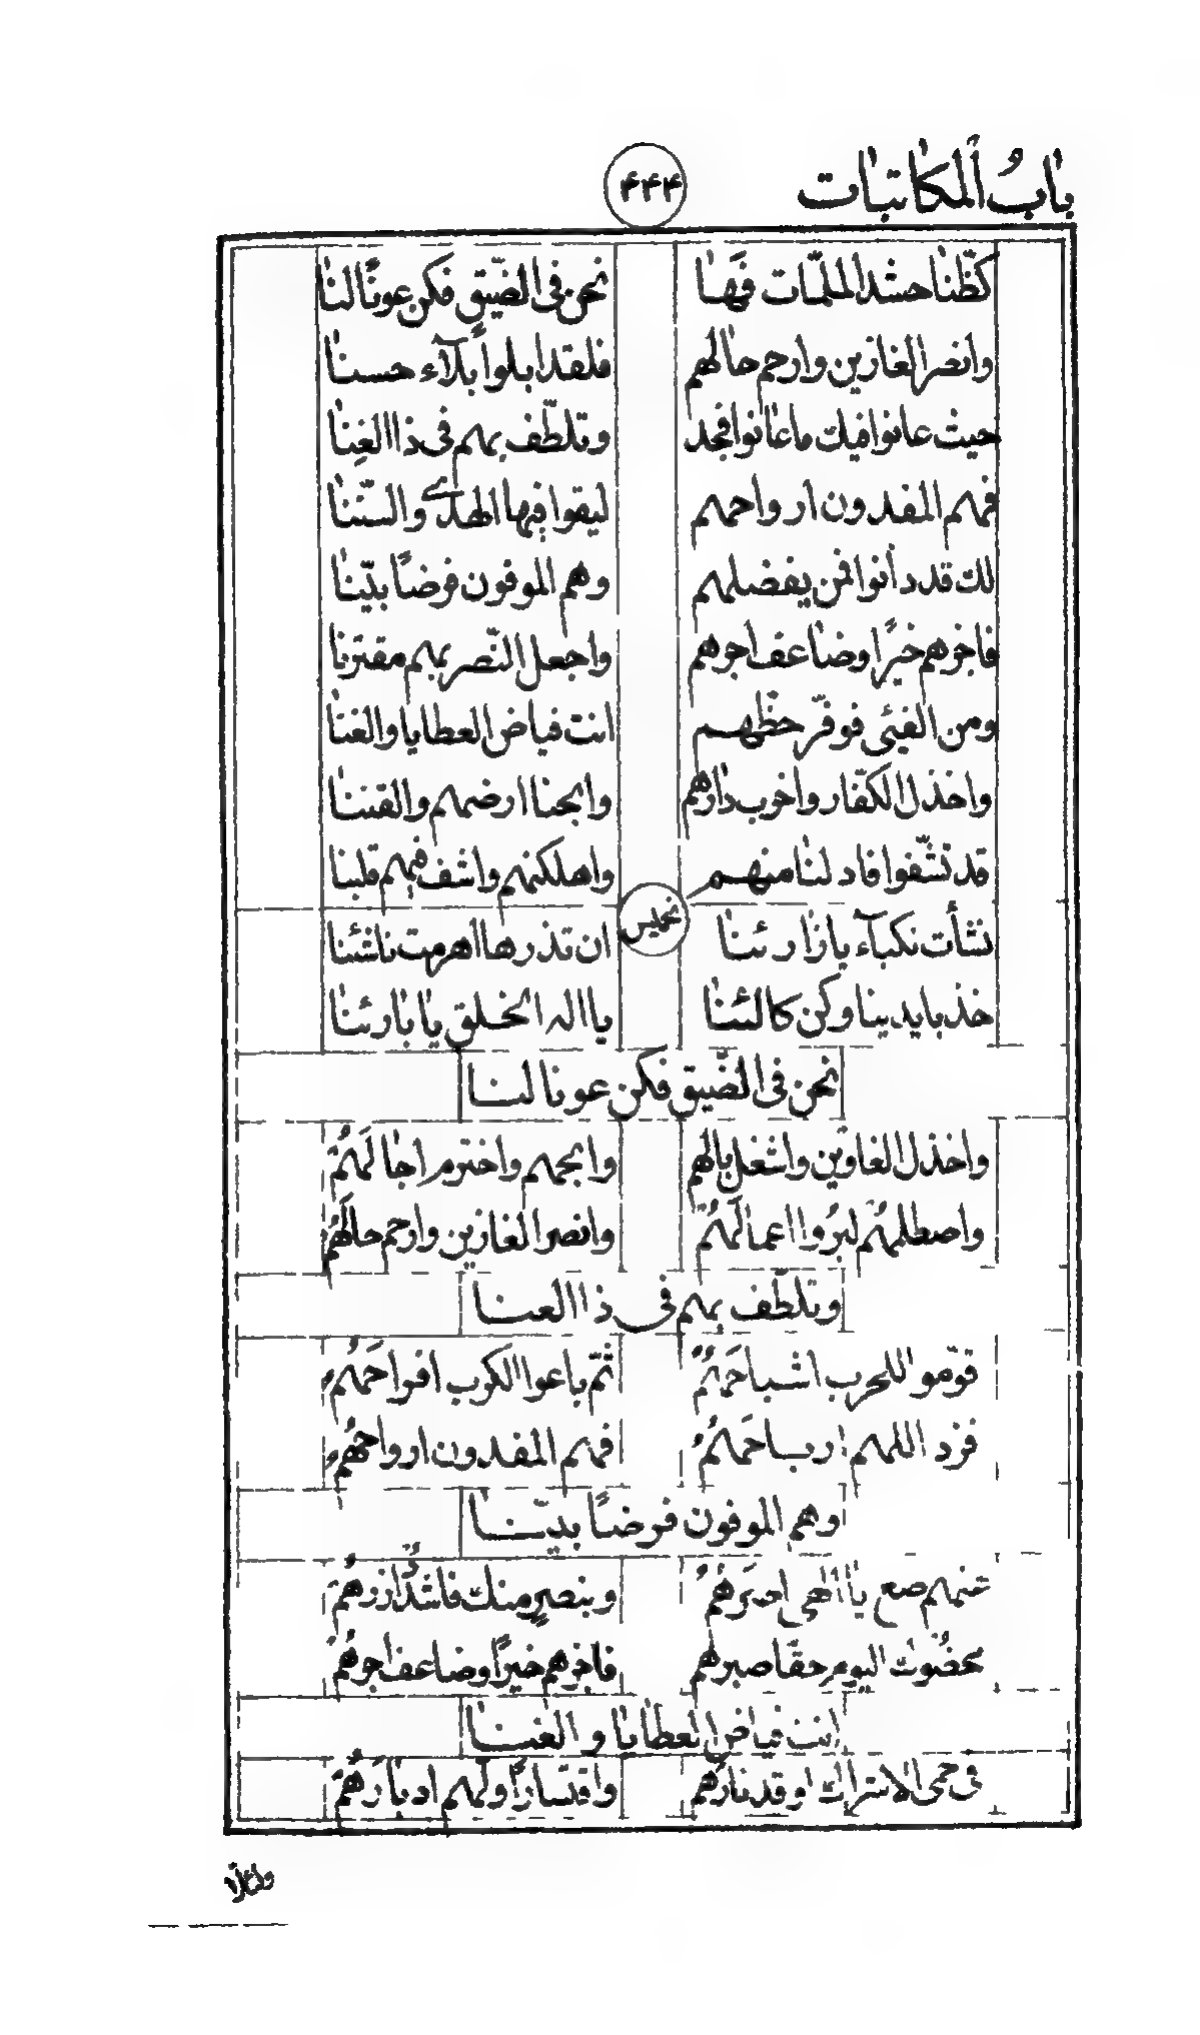 بابُ المكاتبات
۴۴۴
كظّنا حشد الملمّات فَهَا نحن فى الضّيق فكن عونًا لنا
وانصر الغازين وارحم حالهم فلقد ابلوا بلآء حسنا
حيث عانوا فيك ما عانوا فجد وتلطّف بهم فى ذا العنا
فهم المفدون ارواحهم ليقوا فيها الهدى والسّننا
لك قد دانوا فمن يفضلهم وهم الموفون فرضًا بيّنا
فاجزهم خيرًا وضاعف اجرهم واجعل النّصر بهم مقترنا
ومن الفيئ فوفّر حظّهم انت فياض العطايا والغنا
واخذل الكفّار واخرب دارهم وابحنا ارضهم والقننا
قد تشّفوا فادلنا منهم واهلكنهم واشف فيهم قلبنا
تخميس
نشأت نكبآء يا زارئنا ان تذرها اهرمت ناشئنا
خذ بايدينا وكن كالئنا يا اله الخلق يا بارئنا
نحن فى الضّيق فكن عونا لنا
واخذل الغاوين واشغل بالهم وابحهم واخترم اجالَهُمْ
واصطلمهُم لبرُوا اعمالَهُمْ وانصر الغازين وارحم حالَهُم
وتلطّف بهم فى ذا العنا
قوّموا للحرب اشباحَهُمْ ثمّ باعوا الكرب افراحَهُمُ
فزد اللهم ارباحَهُمُ فهم المفدون ارواحهُمُ
وهم الموفون فرضًا بيّنا
عنهم ضع يا الهى اصرَهُمْ وبنصرٍ منك فاشدُدْ ازرهُمْ
محضُوك اليوم حقّا صبرهم فاجزهم خيرًا وضاعف اجرهُمْ
انت فياض العطايا والغنا
فى حمى الاشراك اوقد نارَهُم واقتسارًا ولّهم ادبارَهُمْ